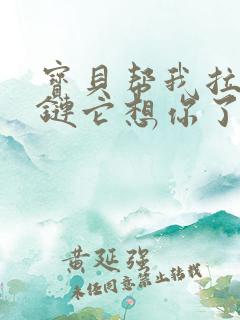 寳貝帮我拉
鏈它想你了
黄延强
未经同意禁止转载